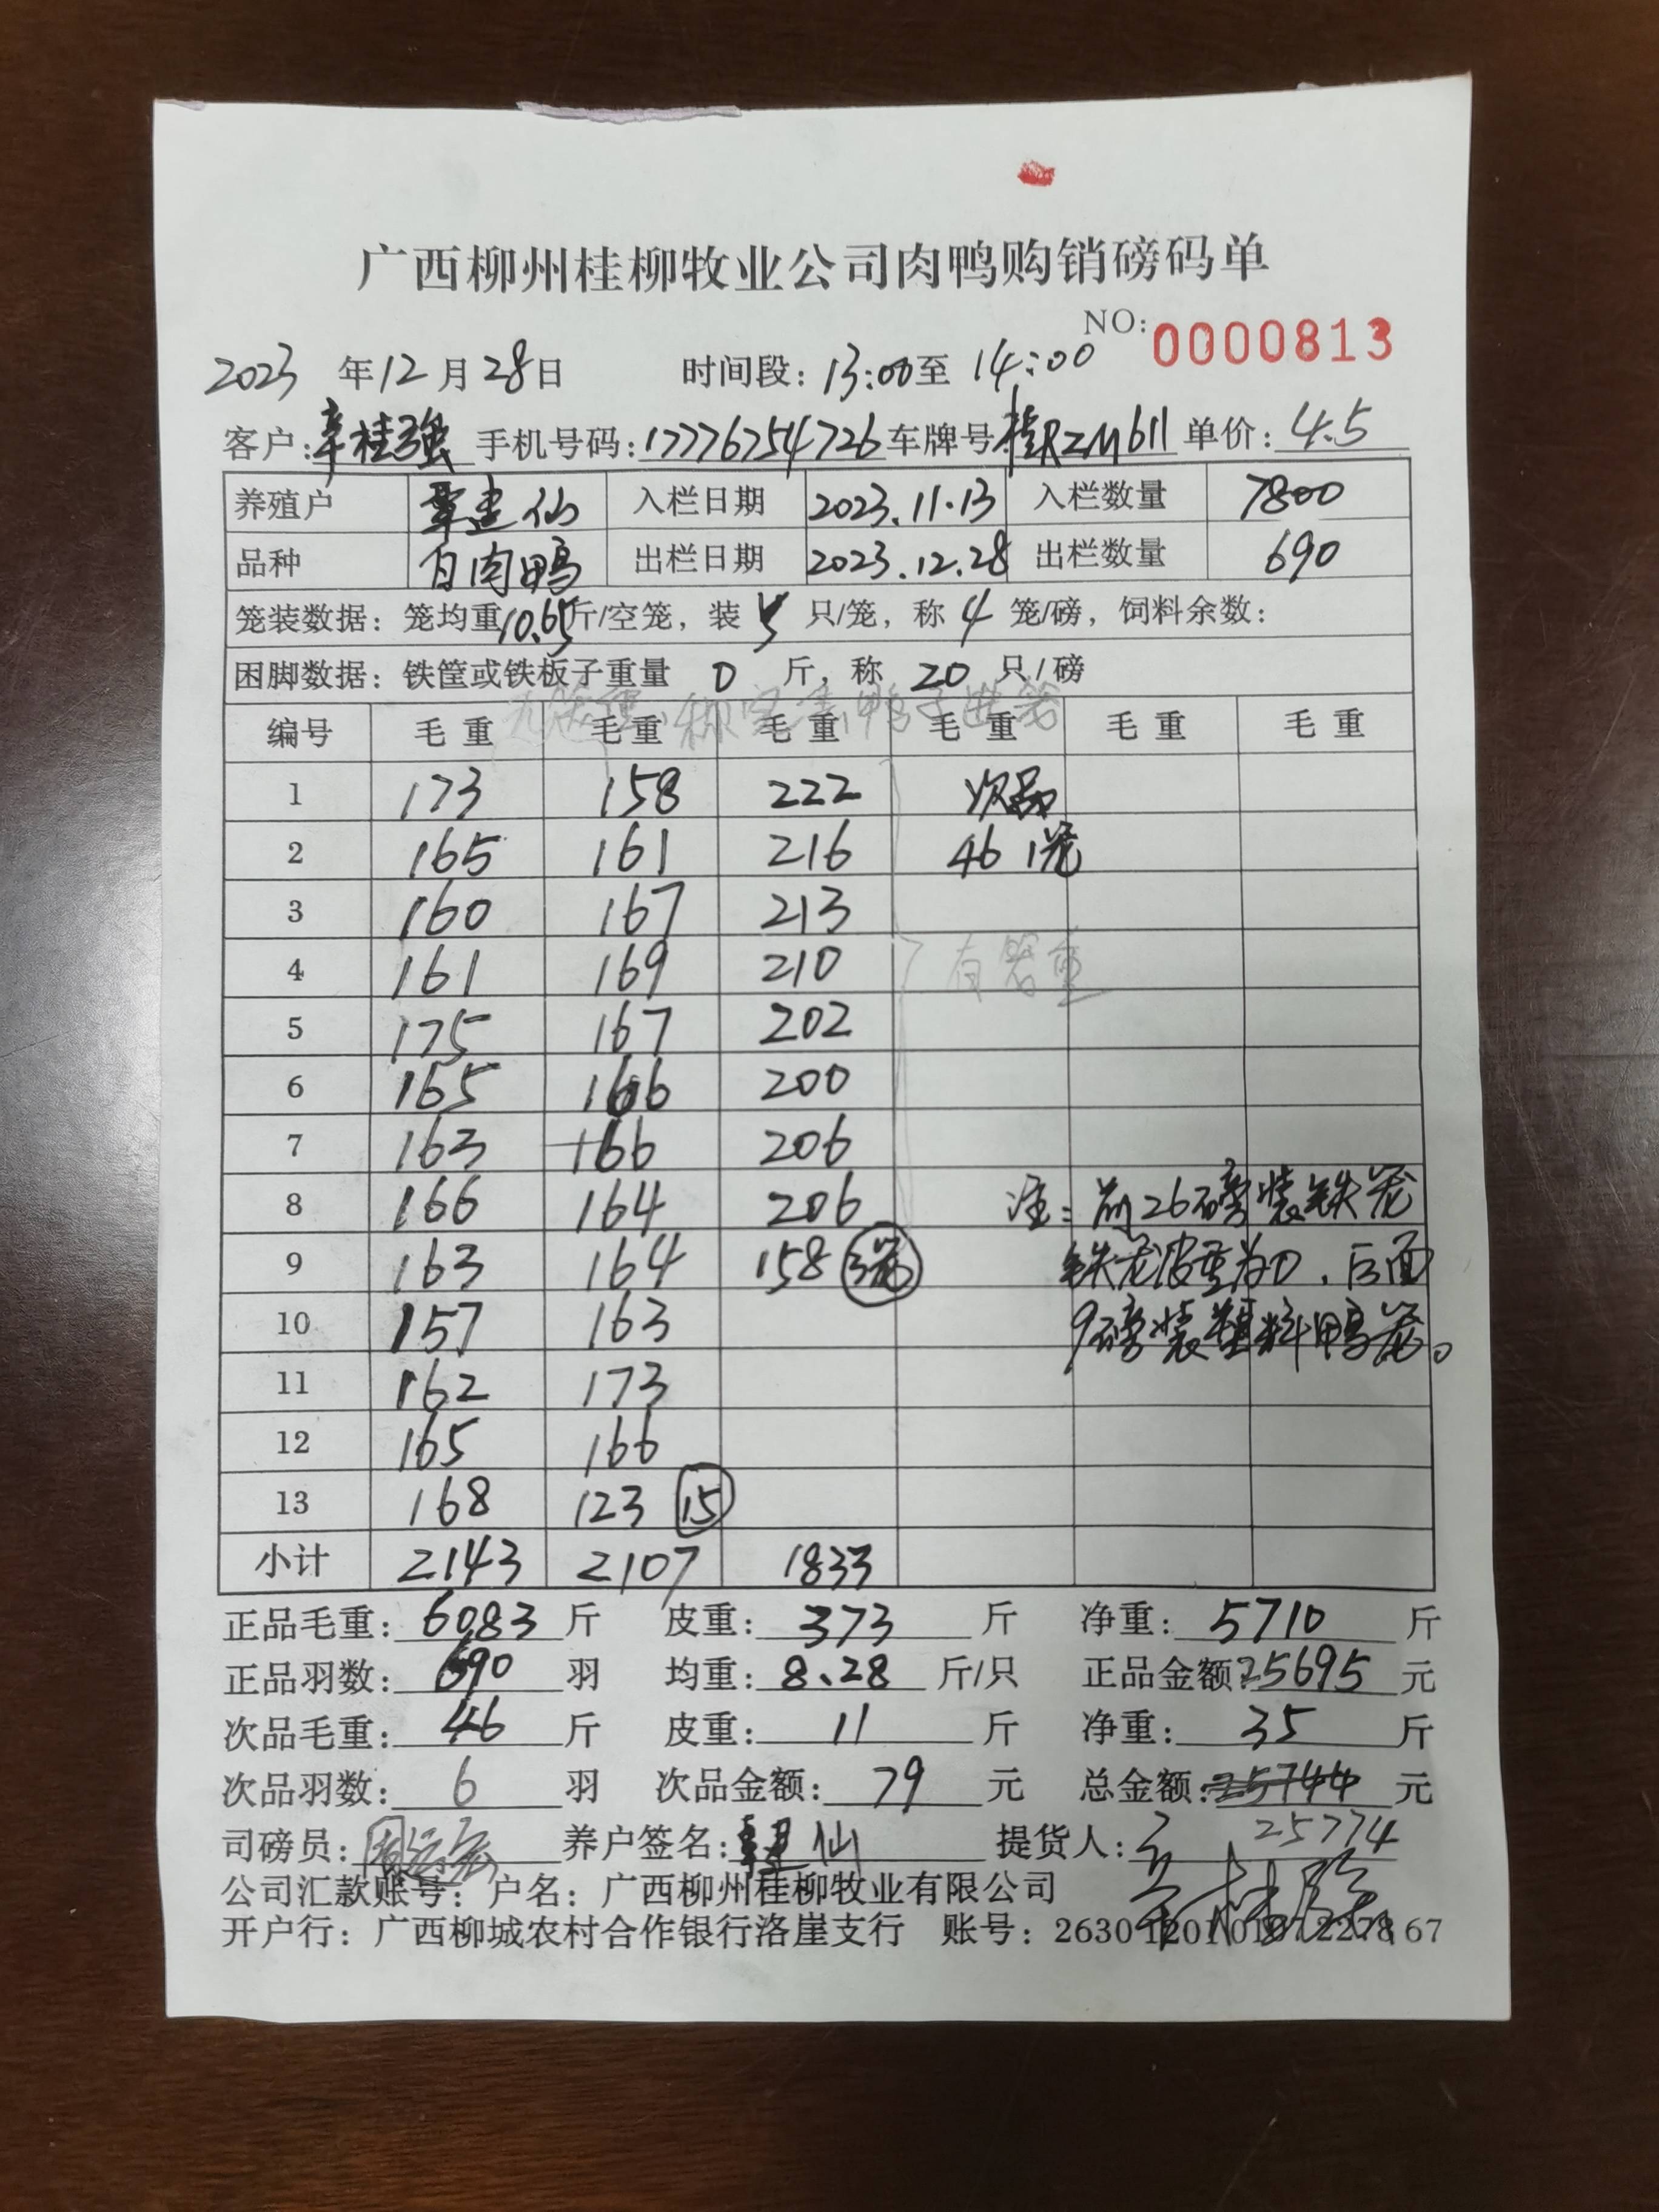 广西柳州桂柳牧业公司肉鸭购销磅码单
NO: 0000813
2023 年 12 月 28 日 时间段: 13:00 至 14:00
客户: 辛桂强 手机号码: 17776754726 车牌号: 桂RZM611 单价: 4.5
养殖户 覃建仙 入栏日期 2023.11.13 入栏数量 7800
品种 白肉鸭 出栏日期 2023.12.28 出栏数量 690
笼装数据: 笼均重 10.65 斤/空笼, 装 5 只/笼, 称 4 笼/磅, 饲料余数:
困脚数据: 铁筐或铁板子重量 0 斤, 称 20 只/磅
编号 毛重 毛重 毛重 毛重 毛重 毛重
1 173 158 222 次品
2 165 161 216 46 1笼
3 160 167 213
4 161 169 210 有器重
5 175 167 202
6 165 166 200
7 163 166 206
8 166 164 206 注: 前26磅装铁笼
9 163 164 158 3笼 铁笼皮重为0, 后面
10 157 163 9磅装塑料鸭笼。
11 162 173
12 165 166
13 168 123 15
小计 2143 2107 1833
正品毛重: 6083 斤 皮重: 373 斤 净重: 5710 斤
正品羽数: 690 羽 均重: 8.28 斤/只 正品金额: 25695 元
次品毛重: 46 斤 皮重: 11 斤 净重: 35 斤
次品羽数: 6 羽 次品金额: 79 元 总金额: 25744 元
司磅员: 养户签名: 覃建仙 提货人: 25774
公司汇款账号: 户名: 广西柳州桂柳牧业有限公司
开户行: 广西柳城农村合作银行洛崖支行 账号: